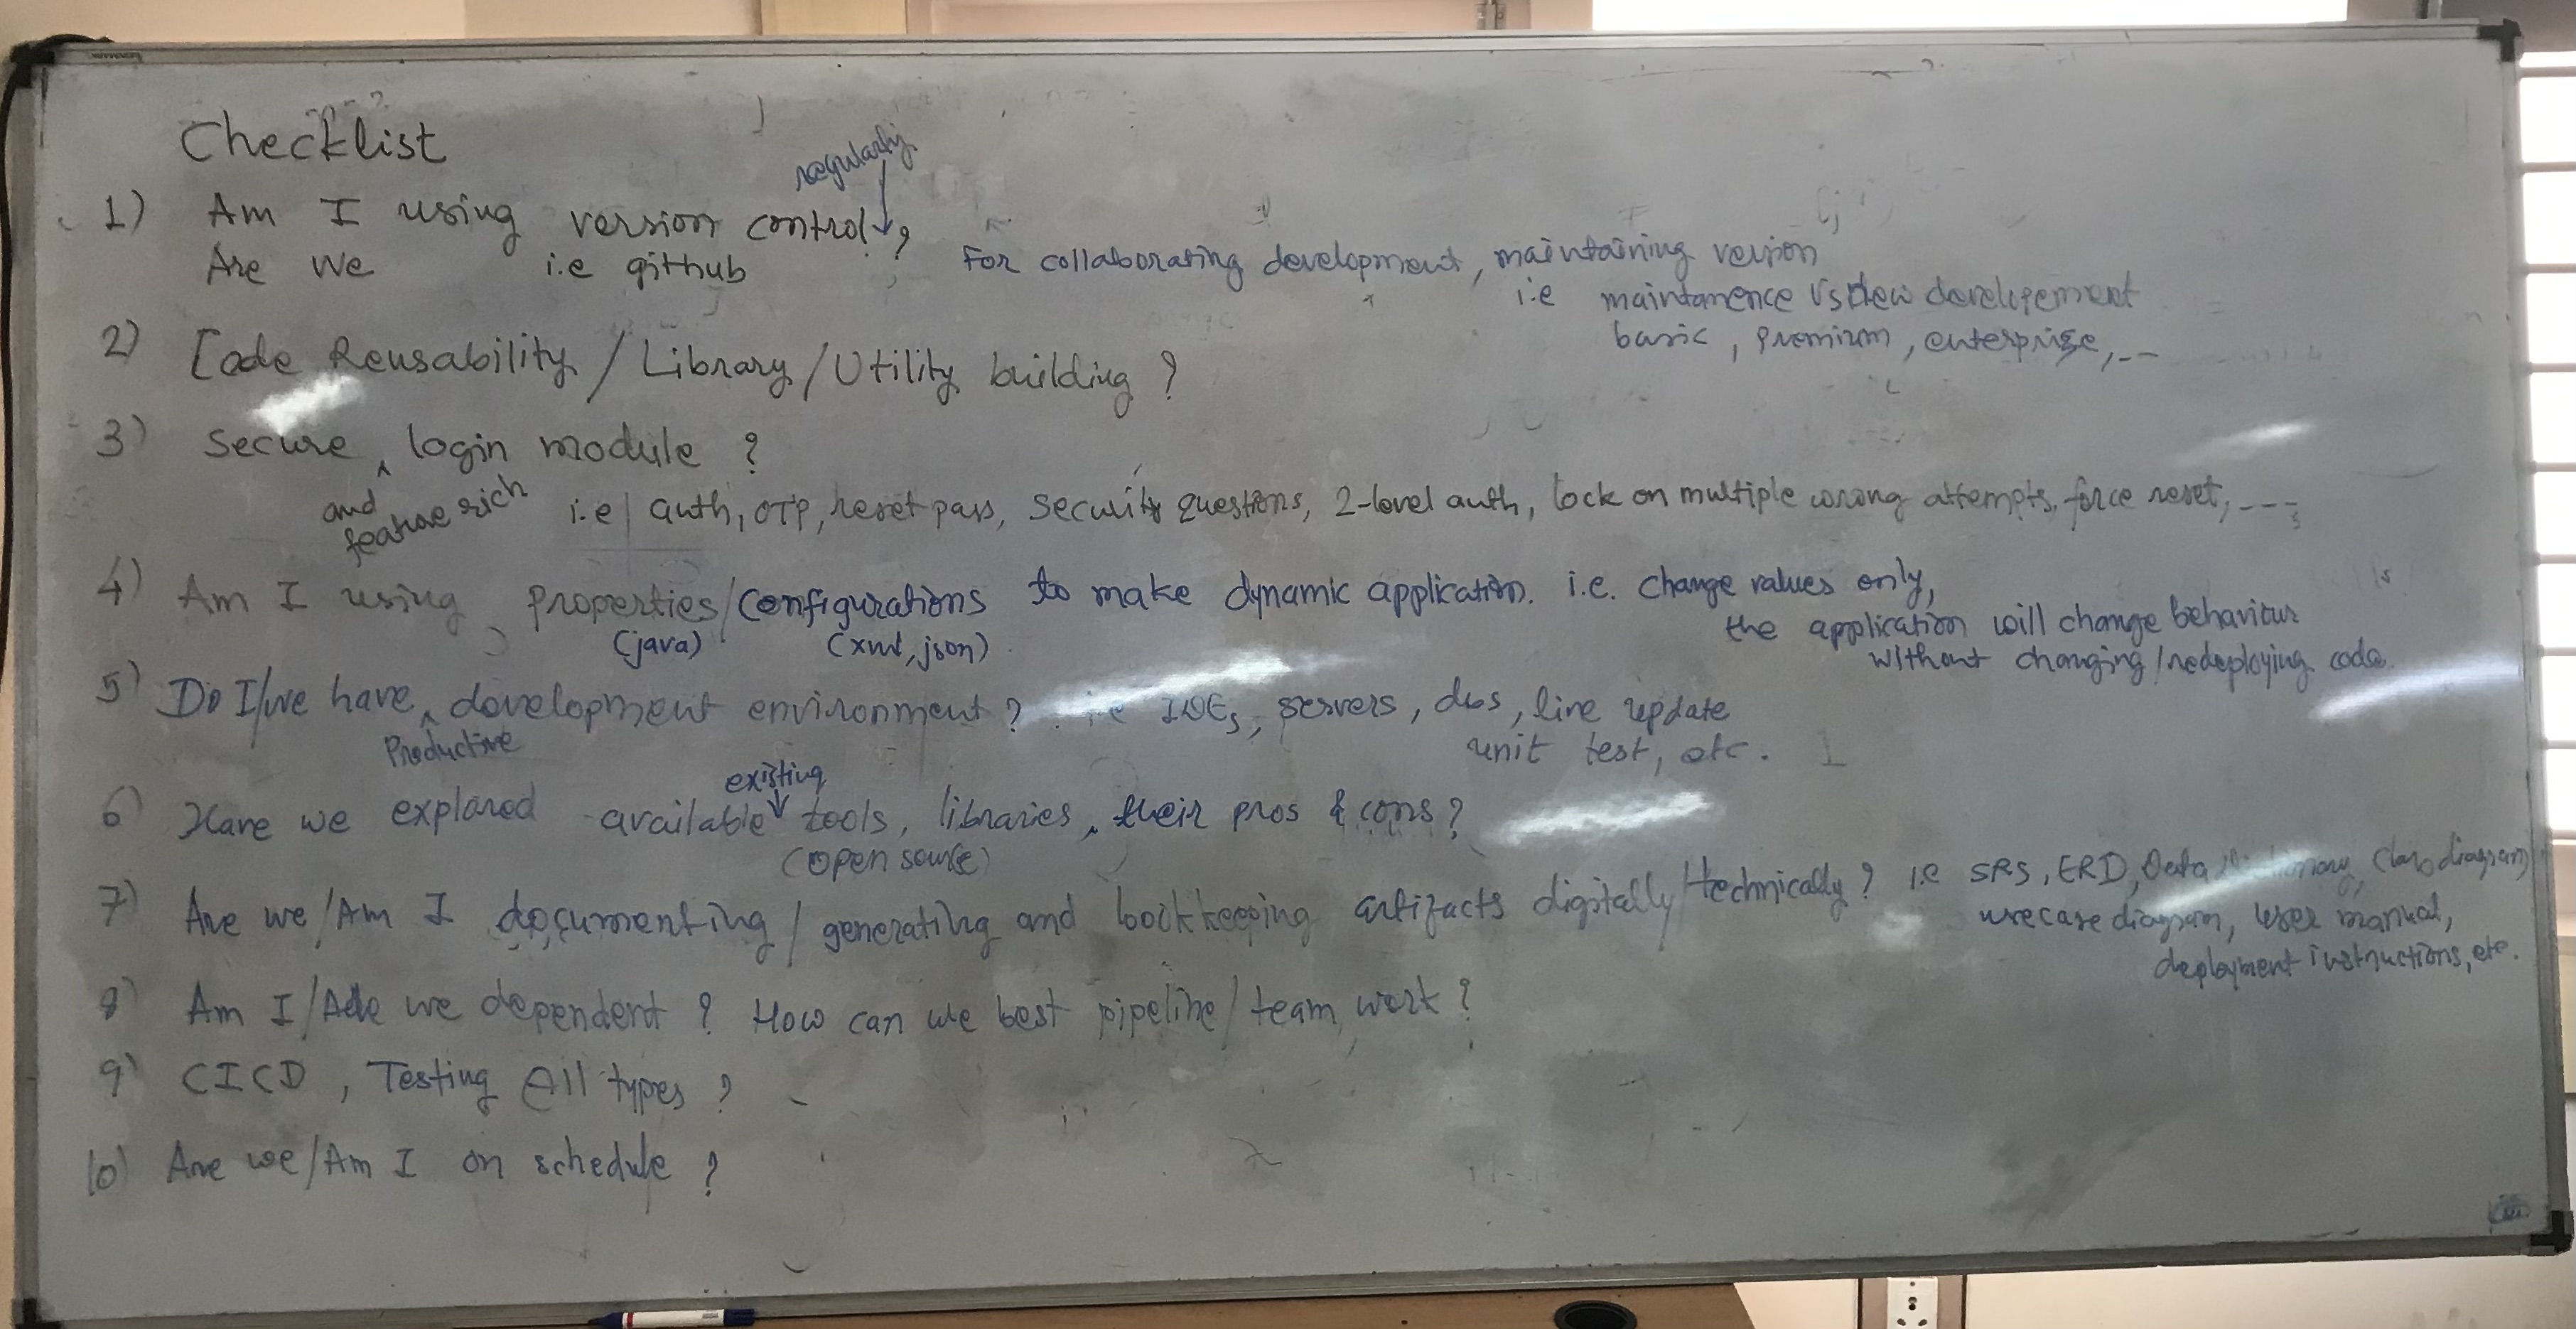 Checklist
regularly
1) Am I using version control ?
Are we i.e github For collaborating development, maintaining version
i.e maintamence vs New developement
basic, premium, enterprise, ---
2) Code Reusability / Library / Utility building ?
3) Secure login module ?
and feature rich
i.e auth, OTP, reset pass, security questions, 2-level auth, lock on multiple wrong attempts, force reset, ---
4) Am I using properties/configurations to make dynamic application. i.e. change values only,
(java) (xml, json)
the application will change behaviour
without changing/redeploying code
5) Do I/we have development environment ? i.e IDEs, servers, dbs, live update
Productive
unit test, etc.
existing
6) Have we explored available tools, libraries, their pros & cons?
(open source)
7) Are we/Am I documenting / generating and bookkeeping artifacts digitally/technically ? i.e SRS, ERD, Data Dictionary, Class diagram
usecase diagram, user manual,
deployment instructions, etc.
8) Am I/Are we dependent ? How can we best pipeline/team work ?
9) CICD, Testing All types ?
10) Are we/Am I on schedule ?